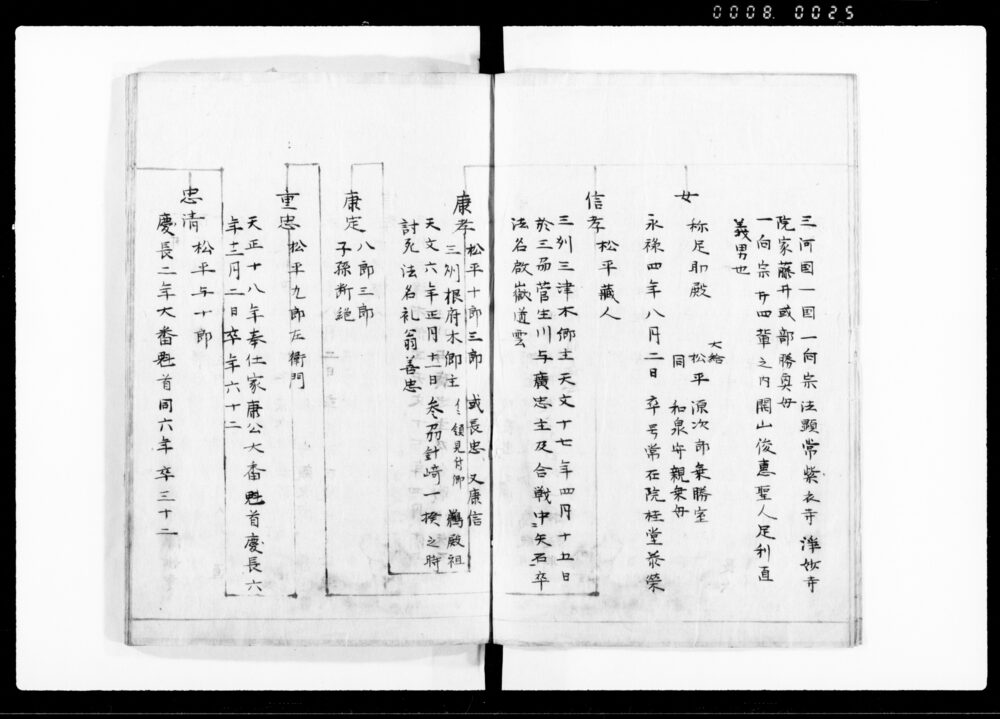 0008 0025
三河国一回一向宗法顕常紫衣寺 浄妙寺
院家藤井或部勝奥母
一向宗廿四輩之内開山俊恵聖人足利直
義男也
女
称足助殿
大給
松平源次郎乗勝室
同 和泉守親乗母
永禄四年八月二日卒号常石院桂堂恭榮
信孝 松平蔵人
三州三津木郷主天文十七年四月十五日
於三州菅生川与廣忠主及合戦中矢石卒
法名啟嶽道雲
康孝 松平十郎三郎 或長忠 又康信
三州根府木郷主 鵜殿祖
天文六年正月十二日参刕針崎一揆之時
討死法名礼翁善忠
康定 八郎三郎
子孫断絶
重忠 松平九郎左衛門
天正十八年奉仕家康公大番魁首慶長六
年十二月二日卒年六十二
忠清 松平与十郎
慶長二年大番魁首同六年卒三十二